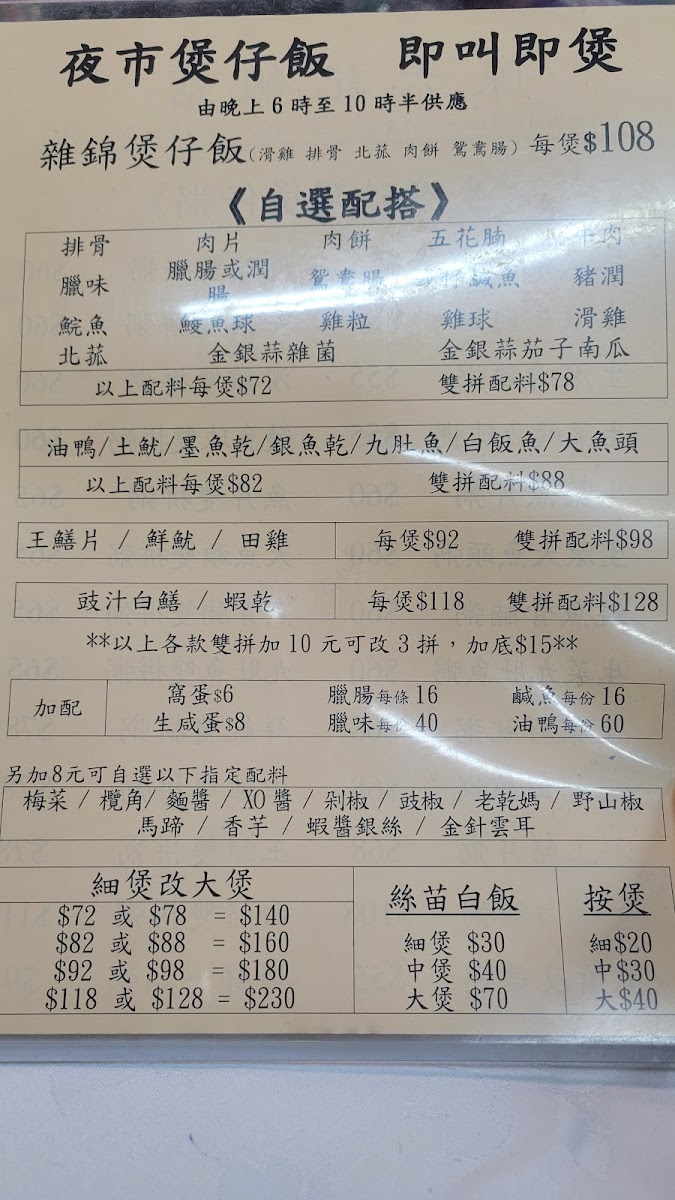 夜市煲仔飯 即叫即煲
由晚上6時至10時半供應
雜錦煲仔飯(滑雞 排骨 北菰 肉餅 鴛鴦腸) 每煲$108
《自選配搭》
排骨 肉片 肉餅 五花腩 牛肉
臘味 臘腸或潤腸 鴛鴦腸 鹹魚 豬潤
鯇魚 鯪魚球 雞粒 雞球 滑雞
北菰 金銀蒜雜菌 金銀蒜茄子南瓜
以上配料每煲$72 雙拼配料$78
油鴨/土魷/墨魚乾/銀魚乾/九肚魚/白飯魚/大魚頭
以上配料每煲$82 雙拼配料$88
王鱔片 / 鮮魷 / 田雞 每煲$92 雙拼配料$98
豉汁白鱔 / 蝦乾 每煲$118 雙拼配料$128
**以上各款雙拼加10元可改3拼，加底$15**
加配 窩蛋$6 臘腸每條16 鹹魚每份16
生咸蛋$8 臘味每份40 油鴨每份60
另加8元可自選以下指定配料
梅菜 / 欖角/ 麵醬 / XO醬 / 剁椒 / 豉椒 / 老乾媽 / 野山椒
馬蹄 / 香芋 / 蝦醬銀絲 / 金針雲耳
細煲改大煲 絲苗白飯 按煲
$72 或 $78 = $140
$82 或 $88 = $160 細煲 $30 細$20
$92 或 $98 = $180 中煲 $40 中$30
$118 或 $128 = $230 大煲 $70 大$40